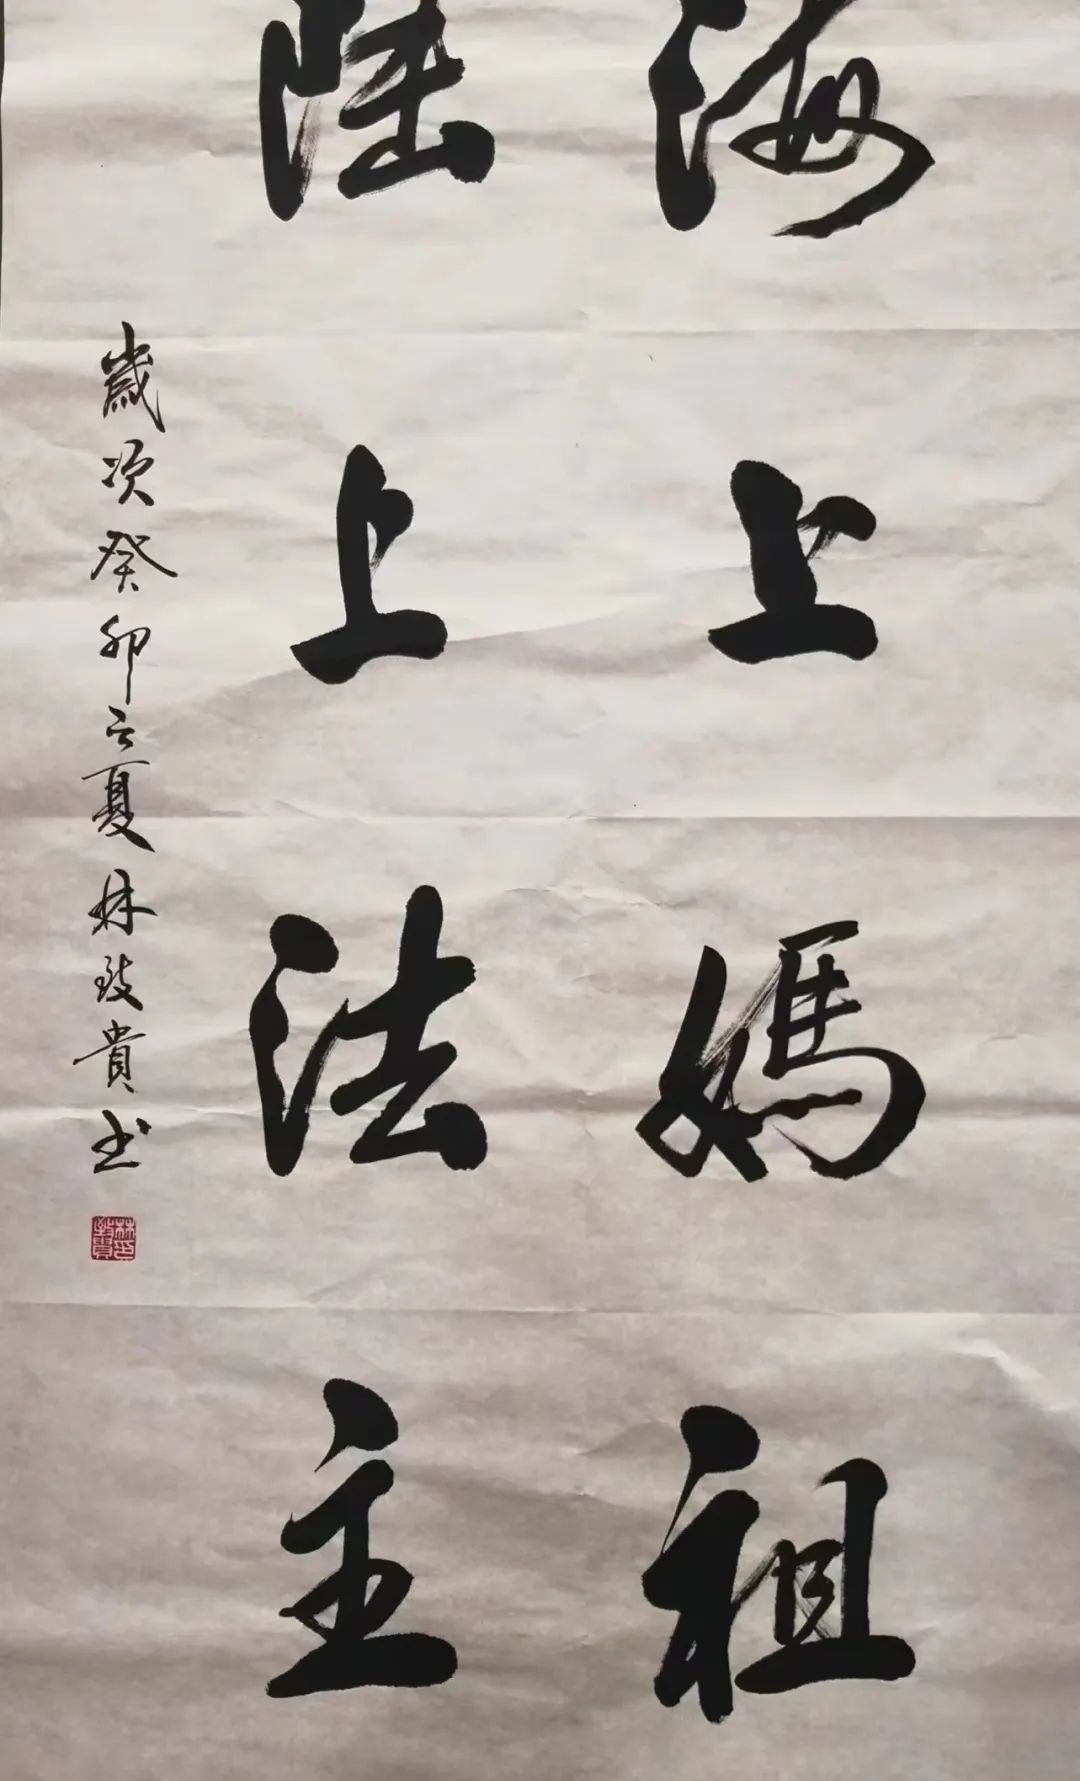 海上媽祖
陸上法主
歲次癸卯之夏林致貴书